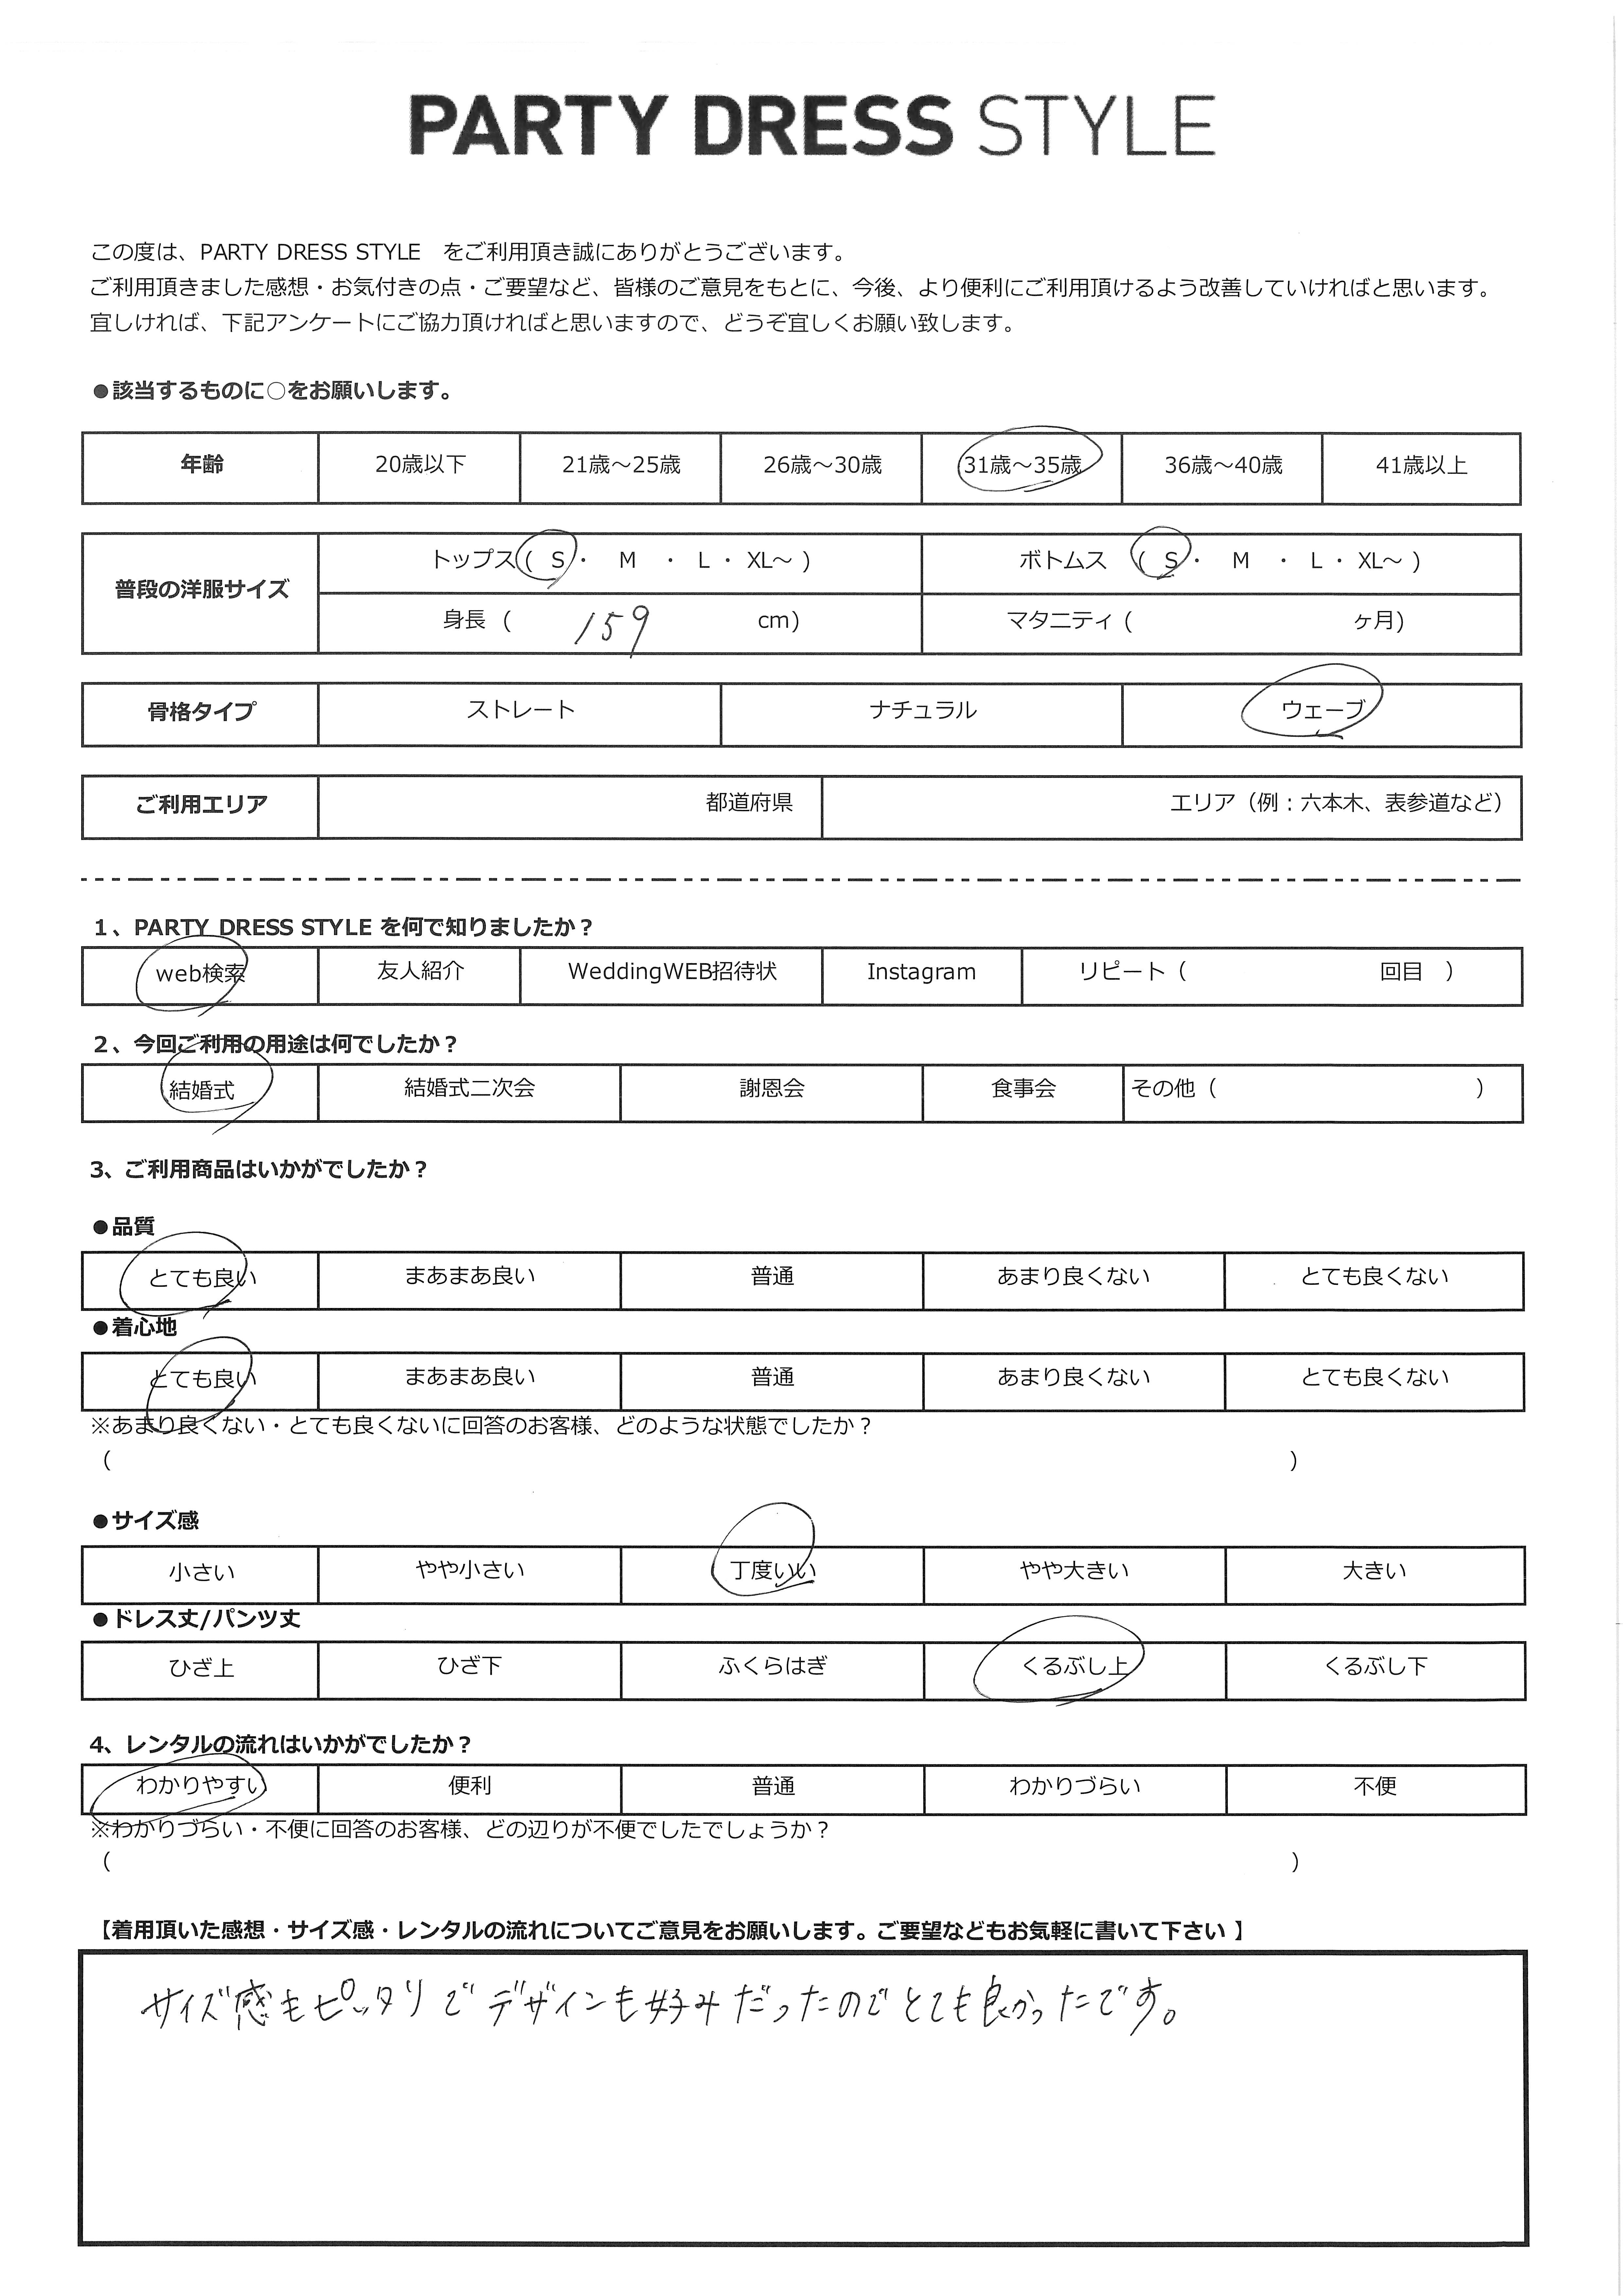 PARTY DRESS STYLE
この度は、PARTY DRESS STYLE　をご利用頂き誠にありがとうございます。
ご利用頂きました感想・お気付きの点・ご要望など、皆様のご意見をもとに、今後、より便利にご利用頂けるよう改善していければと思います。
宜しければ、下記アンケートにご協力頂ければと思いますので、どうぞ宜しくお願い致します。
●該当するものに○をお願いします。
年齢 20歳以下 21歳～25歳 26歳～30歳 31歳～35歳 36歳～40歳 41歳以上
普段の洋服サイズ
トップス( S ・ M ・ L ・ XL～ ) ボトムス ( S ・ M ・ L ・ XL～ )
身長 ( 159 cm) マタニティ ( ヶ月)
骨格タイプ ストレート ナチュラル ウェーブ
ご利用エリア 都道府県 エリア（例：六本木、表参道など）
1、PARTY DRESS STYLE を何で知りましたか？
web検索 友人紹介 WeddingWEB招待状 Instagram リピート（ 回目 ）
2、今回ご利用の用途は何でしたか？
結婚式 結婚式二次会 謝恩会 食事会 その他（ ）
3、ご利用商品はいかがでしたか？
●品質
とても良い まあまあ良い 普通 あまり良くない とても良くない
●着心地
とても良い まあまあ良い 普通 あまり良くない とても良くない
※あまり良くない・とても良くないに回答のお客様、どのような状態でしたか？
（ ）
●サイズ感
小さい やや小さい 丁度いい やや大きい 大きい
●ドレス丈/パンツ丈
ひざ上 ひざ下 ふくらはぎ くるぶし上 くるぶし下
4、レンタルの流れはいかがでしたか？
わかりやすい 便利 普通 わかりづらい 不便
※わかりづらい・不便に回答のお客様、どの辺りが不便でしたでしょうか？
（ ）
【着用頂いた感想・サイズ感・レンタルの流れについてご意見をお願いします。ご要望などもお気軽に書いて下さい 】
サイズ感もピッタリでデザインも好みだったのでとても良かったです。